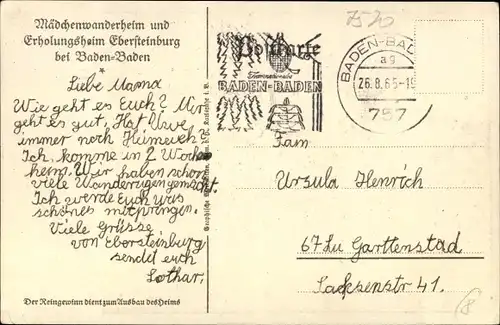 Mädchenwanderheim und
Erholungsheim Ebersteinburg
bei Baden-Baden
Liebe Mama
Wie geht es Euch? Mir
geht es gut, Hat Uwe
immer noch
Ich komme in 2 Wochen
heim. Wir haben schon
viele Wanderugen gemacht.
Ich werde Euch was
schönes mitpringen.
Viele Grüsse
von Ebersteinburg
sendet euch
Lothar.
Der Reingewinn dient zum Ausbau des Heims
7570
Postkarte
BADEN-BADEN
BADEN-BAD
ag
26.8.65-19
757
Fam
Ursula Henrich
67 Lu Garttenstad
Sacksenstr 41.
8